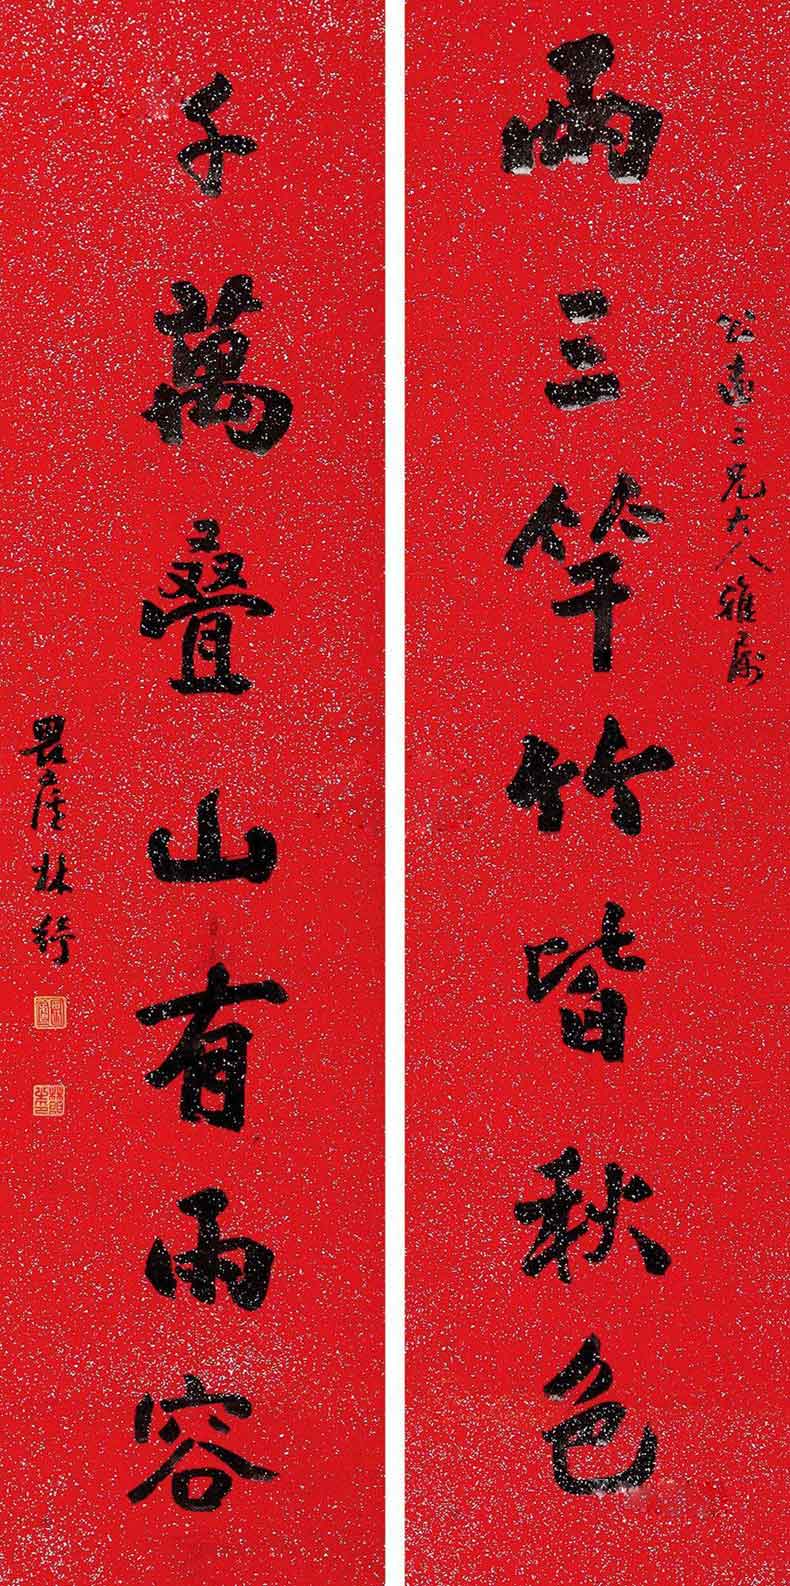 公遠三兄大人雅屬
兩三竿竹皆秋色
千萬叠山有雨容
畏廬林紓